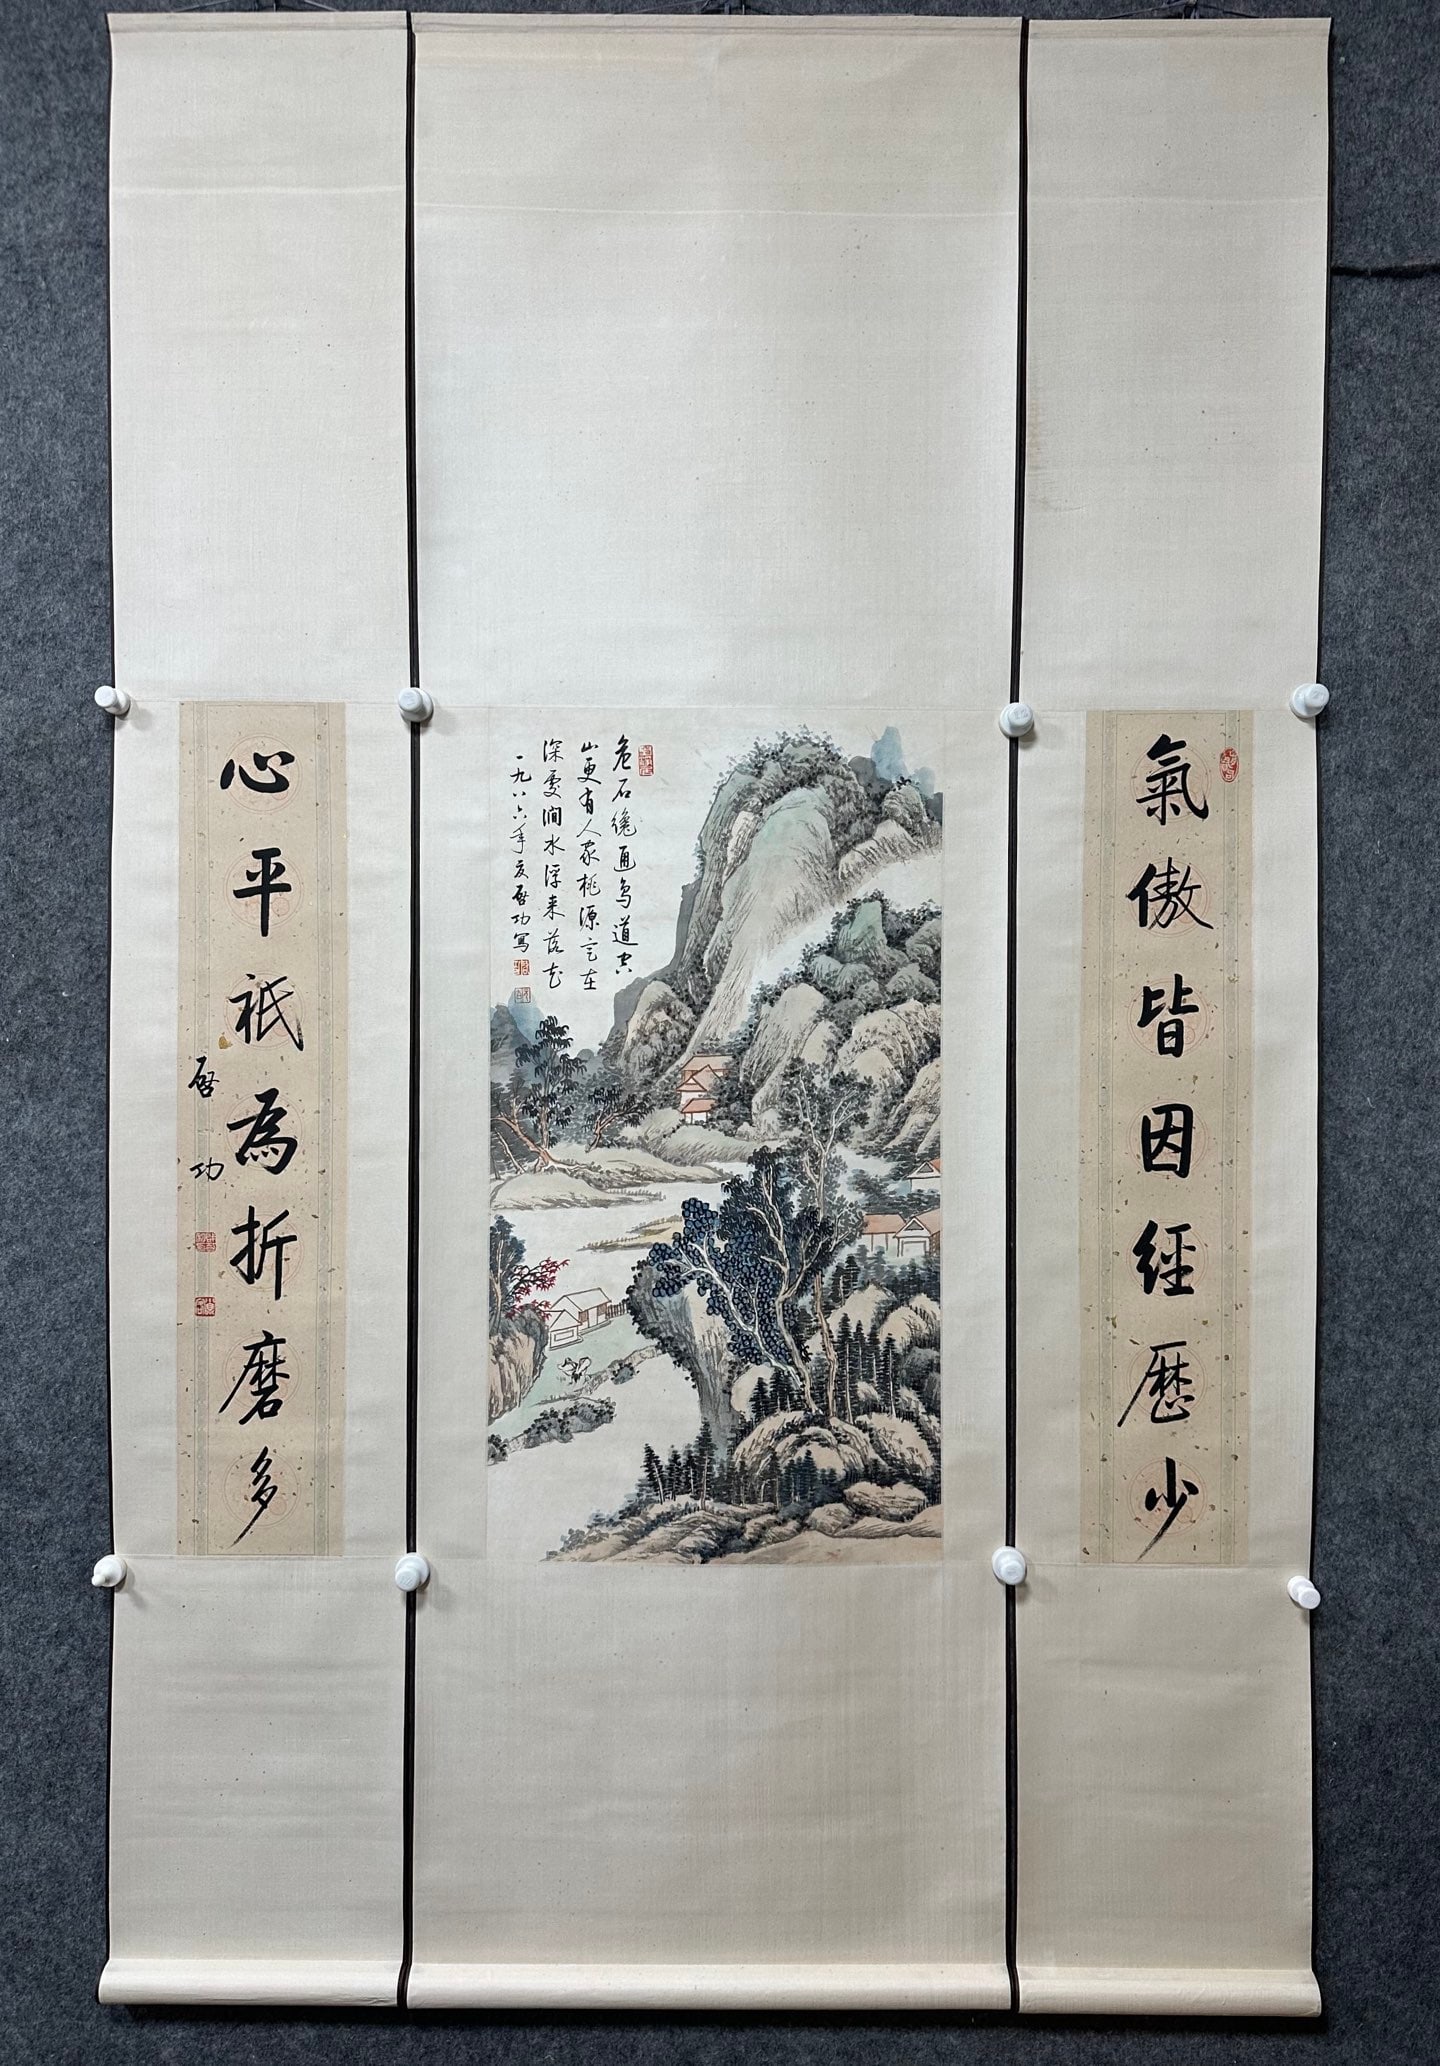 氣傲皆因經歷少
危石纔通鳥道空
山更有人家桃源定在
深處澗水浮來落花
一九八六年夏啓功寫
心平祇為折磨多
啓功